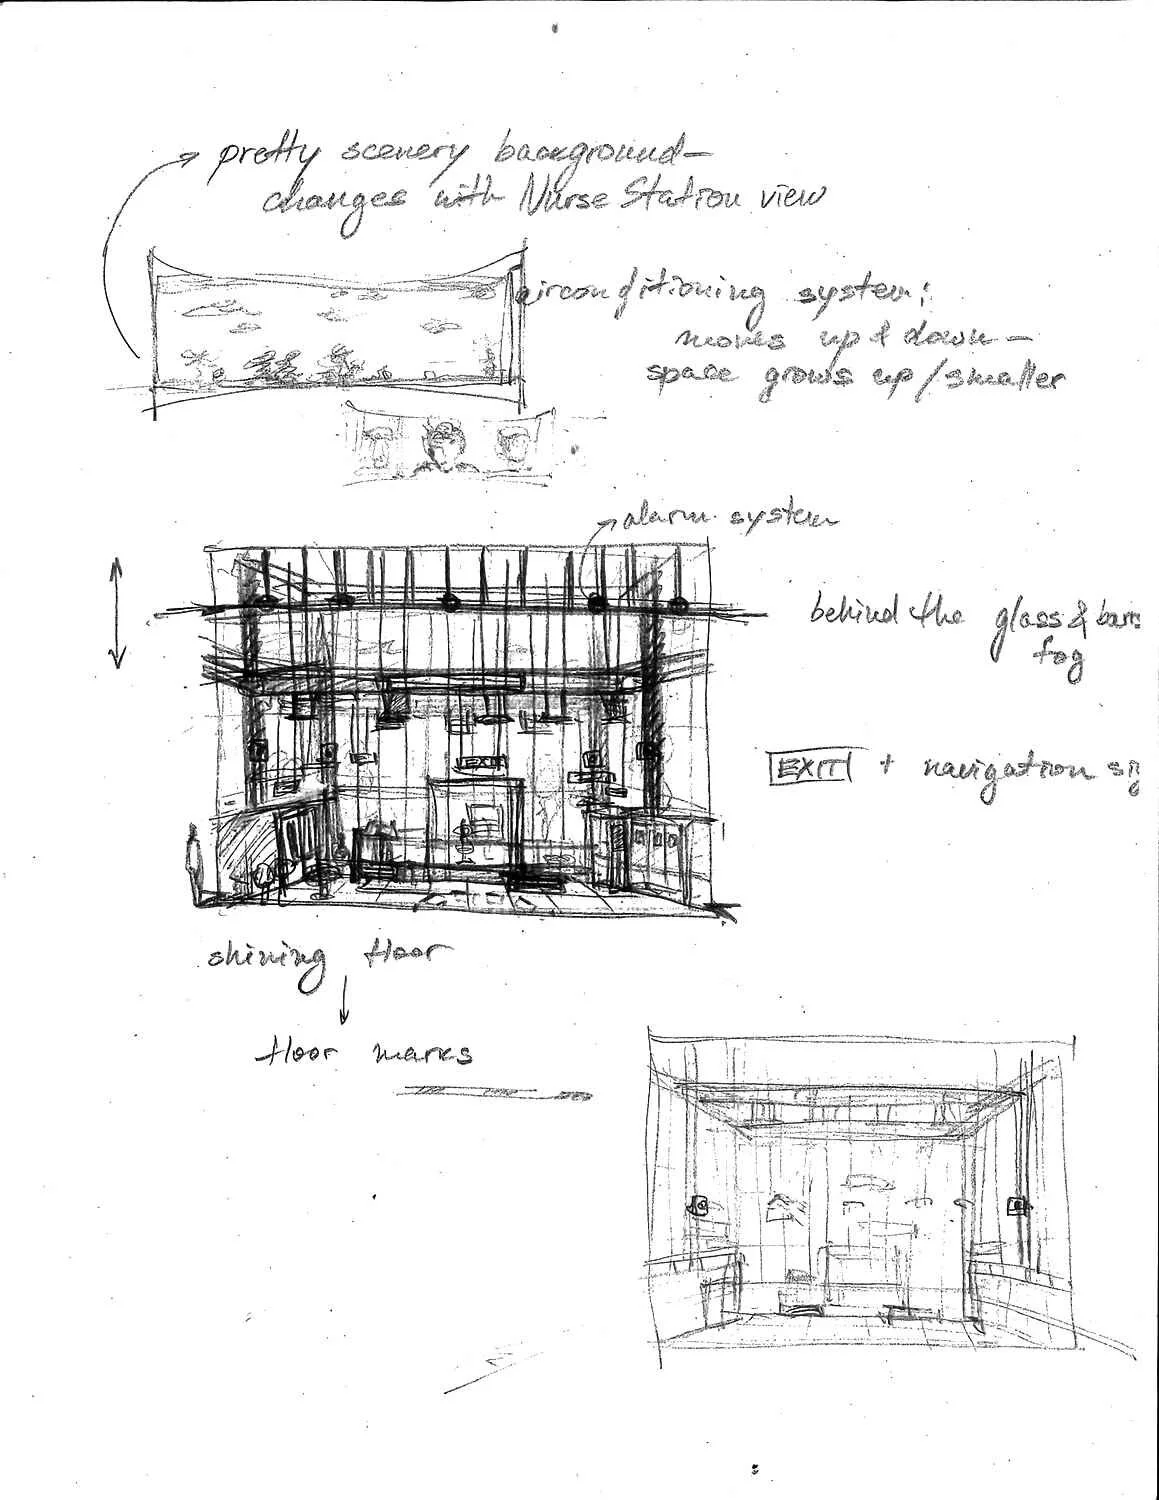 pretty scenery background—
changes with Nurse Station view
airconditioning system:
moves up & down—
space grows up/smaller
alarm system
behind the glass & bars
fog
EXIT
EXIT + navigation
shining floor
floor marks